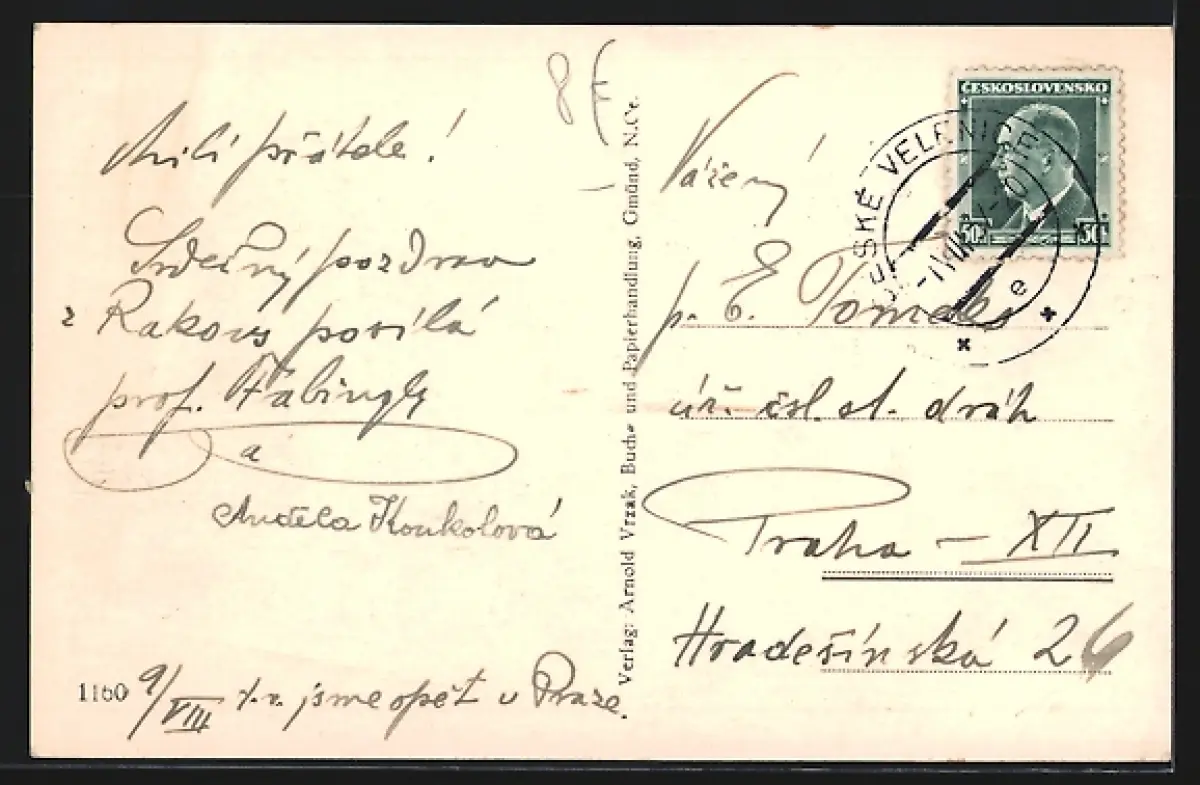 Milí přátelé!
Srdečný pozdrav
z Rakous posílá
prof.
a
Anděla Koukolová
1160 9/VIII t.r. jsme opět v Praze.
Verlag: Arnold Vrzak, Buch- und Papierhandlung, Gmünd, N.Oe.
ČESKOSLOVENSKO
50h 50h
ČESKÉ VELENICE
e
Vážený
p. E. Tomek
úř. čsl. st. drah
Praha – XII
Hradešínská 26